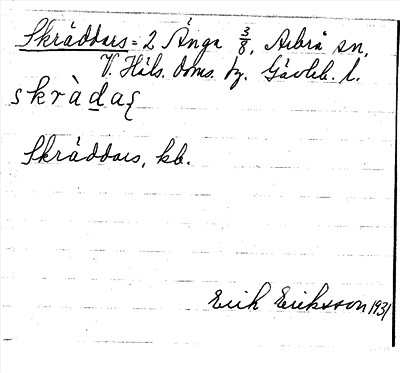 Skräddars = 2 Änga 3/8, Arbrå sn,
V. Häls. doms. fg. Gävleb. l.
skràdaʂ
Skräddars, kb.
Erik Eriksson 1931